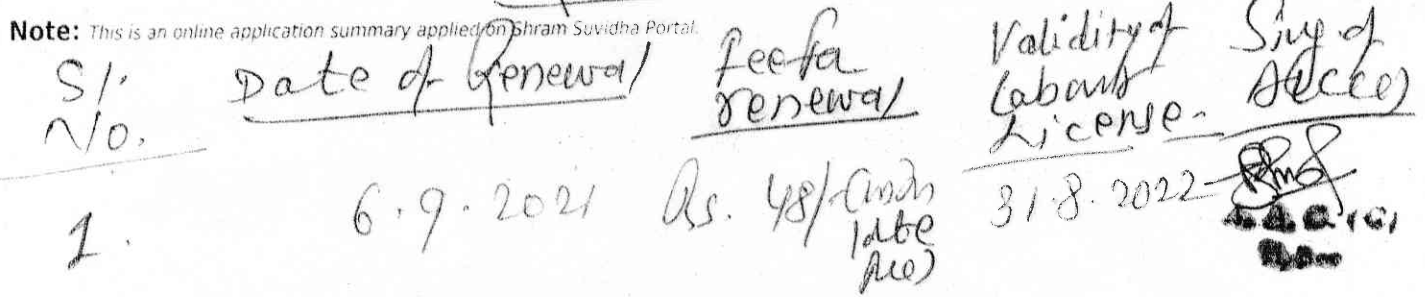 Note: This is an online application summary applied on Shram Suvidha Portal.
Sl. No. Date of Renewal Fee for renewal Validity of Labour License Sig. of ALC(C)
1. 6.9.2021 Rs. 48/- late 31.8.2022